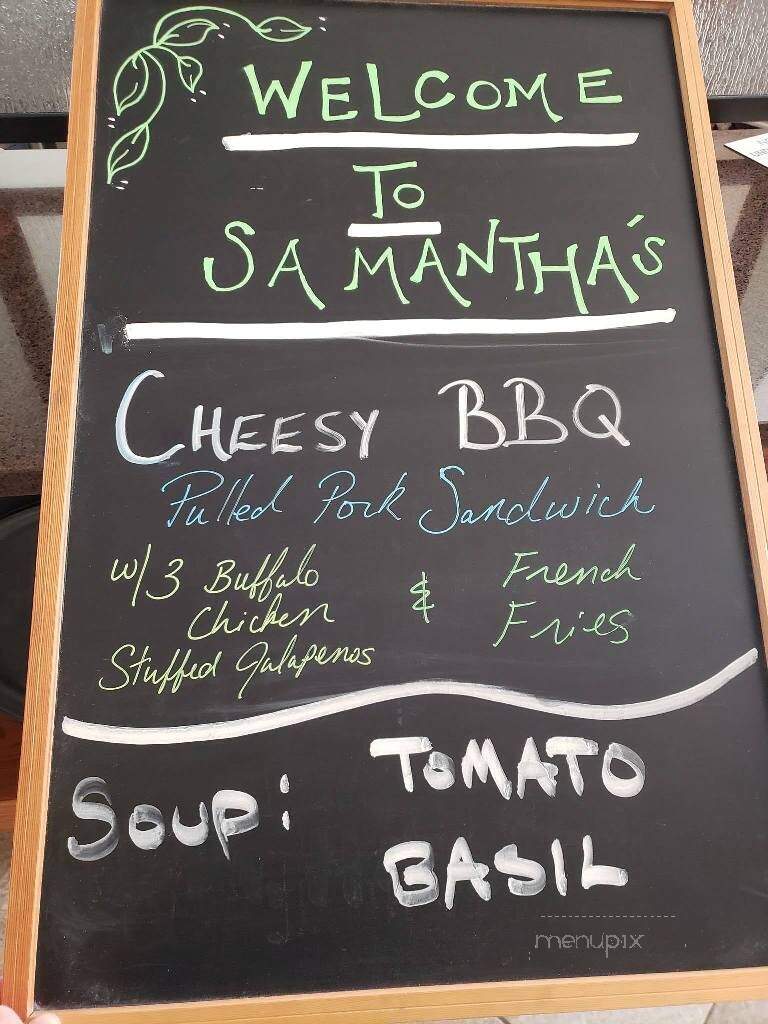 WELCOME
TO
SAMANTHA'S
CHEESY BBQ
Pulled Pork Sandwich
w/3 Buffalo Chicken Stuffed Jalapenos
&
French Fries
SOUP: TOMATO BASIL
menupix